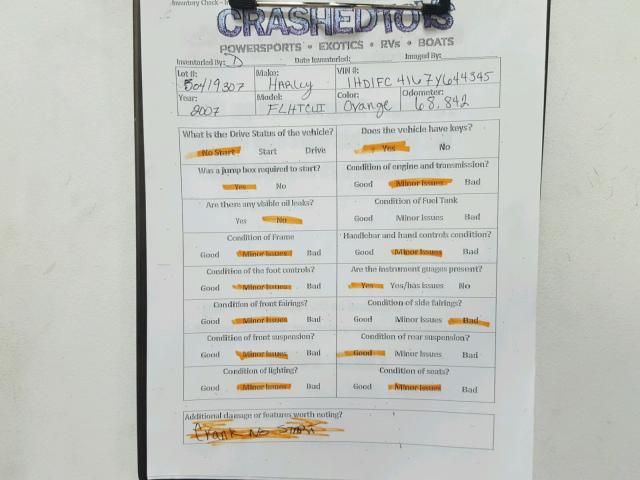 Inventory Check - In
CRASHEDTOYS
POWERSPORTS • EXOTICS • RVs • BOATS
Inventoried By: D Date Inventoried: Imaged By:
Lot #: Make: VIN #:
50419307 Harley 1HD1FC4167Y644345
Year: Model: Color: Odometer:
2007 FLHTCUI Orange 68,842
What is the Drive Status of the vehicle? Does the vehicle have keys?
No Start Start Drive Yes No
Was a jump box required to start? Condition of engine and transmission?
Yes No Good Minor Issues Bad
Are there any visible oil leaks? Condition of Fuel Tank
Yes No Good Minor Issues Bad
Condition of Frame Handlebar and hand controls condition?
Good Minor Issues Bad Good Minor Issues Bad
Condition of the foot controls? Are the instrument guages present?
Good Minor Issues Bad Yes Yes/has issues No
Condition of front fairings? Condition of side fairings?
Good Minor Issues Bad Good Minor Issues Bad
Condition of front suspension? Condition of rear suspension?
Good Minor Issues Bad Good Minor Issues Bad
Condition of lighting? Condition of seats?
Good Minor Issues Bad Good Minor Issues Bad
Additional damage or features worth noting?
Crank No Start